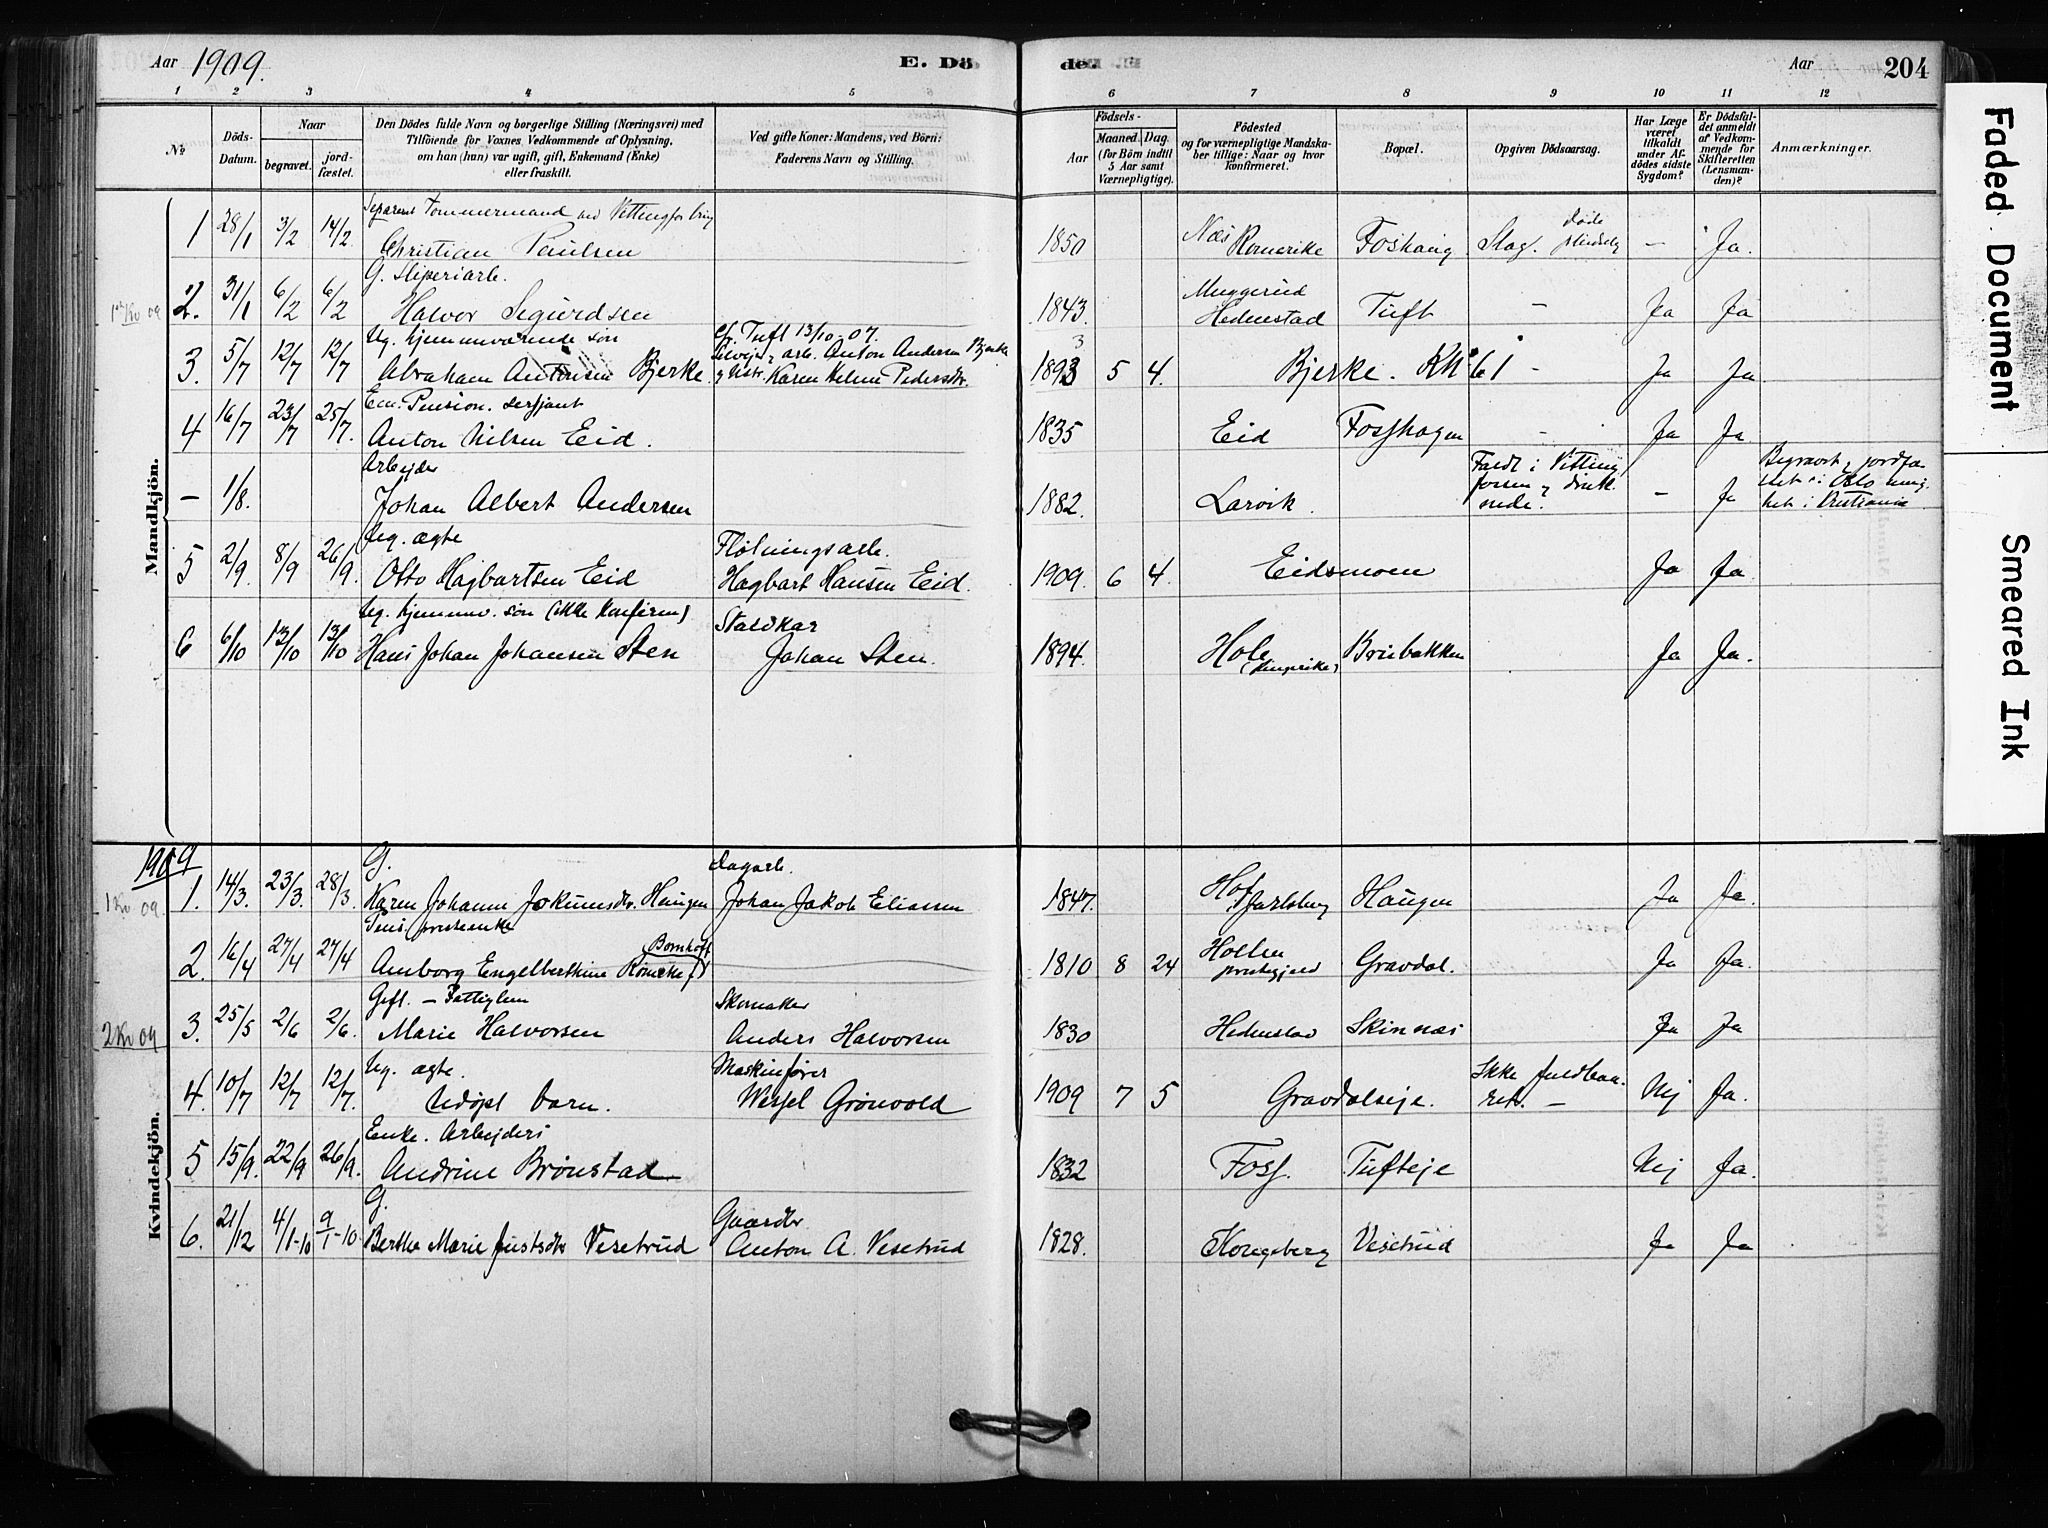 Aar 1909.
E. Dö
de.
Aar
204
1 2 3 4 5 6 7 8 9 10 11 12
№
Döds-Datum.
Naar
begravet.
jord-fæstet.
Den Dödes fulde Navn og borgerlige Stilling (Næringsvei) med
Tilföiende for Voxnes Vedkommende af Oplysning,
om han (hun) var ugift, gift, Enkemand (Enke)
eller fraskilt.
Ved gifte Koner: Mandens, ved Börn:
Faderens Navn og Stilling.
Födsels-
Aar
Maaned. Dag.
(for Börn indtil
5 Aar samt
Værnepligtige).
Födested
og for værnepligtige Mandska-
ber tillige: Naar og hvor
konfirmeret.
Bopæl.
Opgiven Dödsaarsag.
Har Læge
været
tilkaldt
under Af-
dödes sidste
Sygdom?
Er Dödsfal-
det anmeldt
af Vedkom-
mende for
Skifteretten
(Lensman-
den)?
Anmærkninger.
Mandkjön.
Tømmermand ved Vittingfos brug
1 28/1 3/2 14/2 Christian Paulsen 1850 Næs Romerike Foshaug Slag. døde – Ja.
G. Sliperiarb.
2. 31/1 6/2 6/2 Halvor Sigurdsen 1843. Muggerud Hedenstad Tuft – Ja Ja
Ug. hjemmeværende søn
cfr. Tuft 13/10-07.
3. 5/7 12/7 12/7 Abraham Antonsen Bjerke. arb. Anton Andersen Bjerke
Karen Helene Pedersdtr. 1893 5 4. Bjerke. 61 – Ja Ja
Em. Pension. Serjant
4 16/7 23/7 25/7. Anton Nilsen Eid. 1835 Eid Fosshagen – Ja Ja
Arbejder
– 1/8. Johan Albert Andersen 1882. Larvik. Faldt i Vitting
fossen og druk
nede. – Ja Begravet og jordfæ-
stet i Oslo menig
het i Kristiania
Ug. ægte
Fløtningsarb.
5 2/9. 8/9 26/9. Otto Hagbartsen Eid Hagbart Hansen Eid. 1909. 6 4. Eidsmoen Ja Ja
Ug. hjemmev. søn (ikke konfirm)
Staldkar
6 6/10 13/10 13/10 Hans Johan Johansen Sten Johan Sten. 1894. Hole (Ringerike) Ja Ja.
Kvindekjön.
1909
1 Kv 09.
G.
Dagarb.
1. 14/3. 23/3. 28/3. Karen Johanne Haugen Johan Jakob Eliassen 1847. Hof Jarlsberg Haugen Ja Ja.
2. 16/4 27/4 27/4 Amborg Engelberthine Bornhoft 1810 8 24 Hollen prestegjeld Gravdal. Ja Ja.
Gift. – Fattiglem
Skomaker
2 Kv 09
3. 25/5 2/6 2/6. Marie Halvorsen Anders Halvorsen 1830 Hedenstad Skinnæs Ja Ja
Ug. ægte.
Maskinfører
4. 10/7 12/7 12/7. Udøpt barn. Wessel Grønvold 1909 7 5 Gravdalseje. Ikke fuldbaa-
ret. – Nej Ja.
Enke. Arbejders
5 15/9. 22/9 26/9. Andrine Brønstad 1832 Foss. Tufteje Nej Ja.
G.
Gaardbr
6. 21/12 4/1-10 9/1-10 Berthe Marie Justsdtr Vesetrud Anton A. Vesetrud 1828. Kongsberg Vesetrud Ja Ja
Faded Document
Smeared Ink